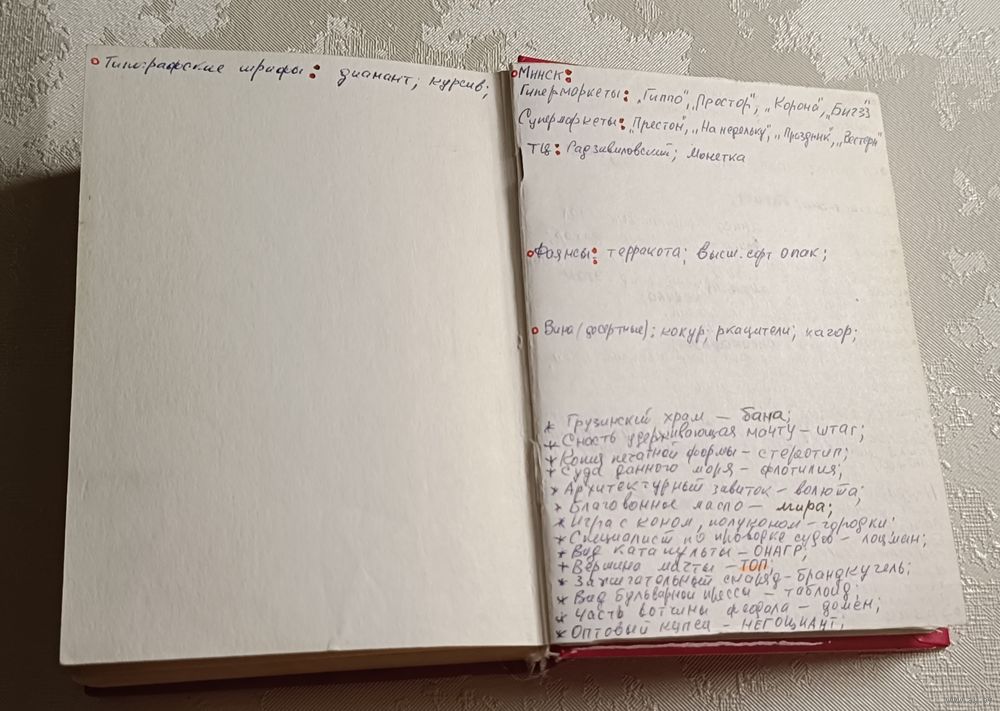 Типографские шрифы: диамант; курсив;
Минск:
Гипермаркеты: „Гиппо", „Простор", „Корона", „Бигзз"
Супермаркеты: „Престон", „На недельку", „Праздник", „Вестерн"
ТЦ: Радзивиловский; Монетка
Фаянсы: терракота; высш. сорт опак;
Вина (десертные): кокур; ркацители; кагор;
* Грузинский храм – бана;
* Снасть удерживающая мачту – штаг;
* Копия печатной формы – стереотип;
* Суда данного моря – флотилия;
* Архитектурный завиток – волюта;
* Благовонное масло – мира;
* Игра с коном, полуконом – городки;
* Специалист по проводке судов – лоцман;
* Вид катапульты – ОНАГР;
* Вершина мачты – ТОП;
* Зажигательный снаряд – брандкугель;
* Вид бульварной прессы – таблоид;
* Часть вотчины феодала – домен;
* Оптовый купец – НЕГОЦИАНТ;